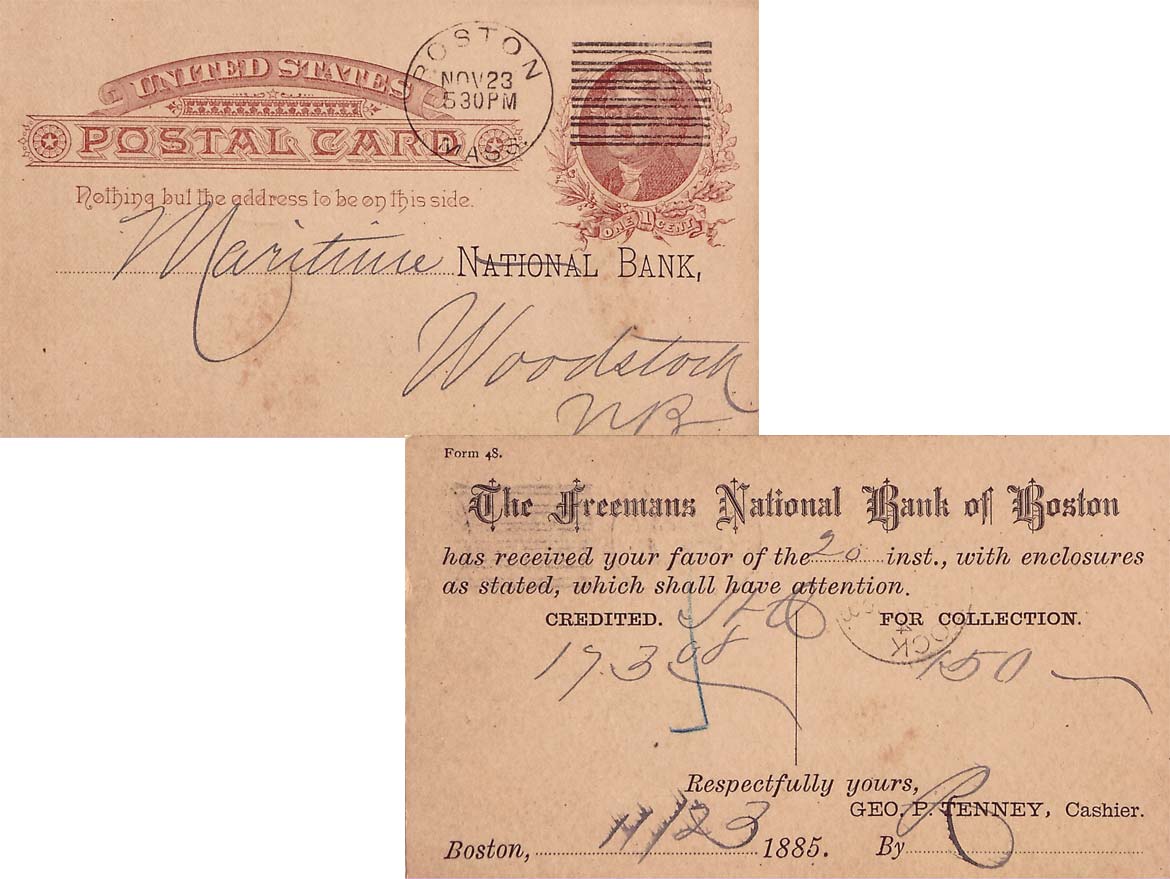 UNITED STATES
POSTAL CARD
BOSTON
NOV 23
5 30 PM
MASS.
Nothing but the address to be on this side.
ONE 1 CENT
Maritime NATIONAL BANK,
Woodstock
NB
Form 48.
The Freemans National Bank of Boston
has received your favor of the 20 inst., with enclosures
as stated, which shall have attention.
CREDITED. FOR COLLECTION.
173 150
Respectfully yours,
GEO. P. TENNEY, Cashier.
Boston, 11/23 1885. By R